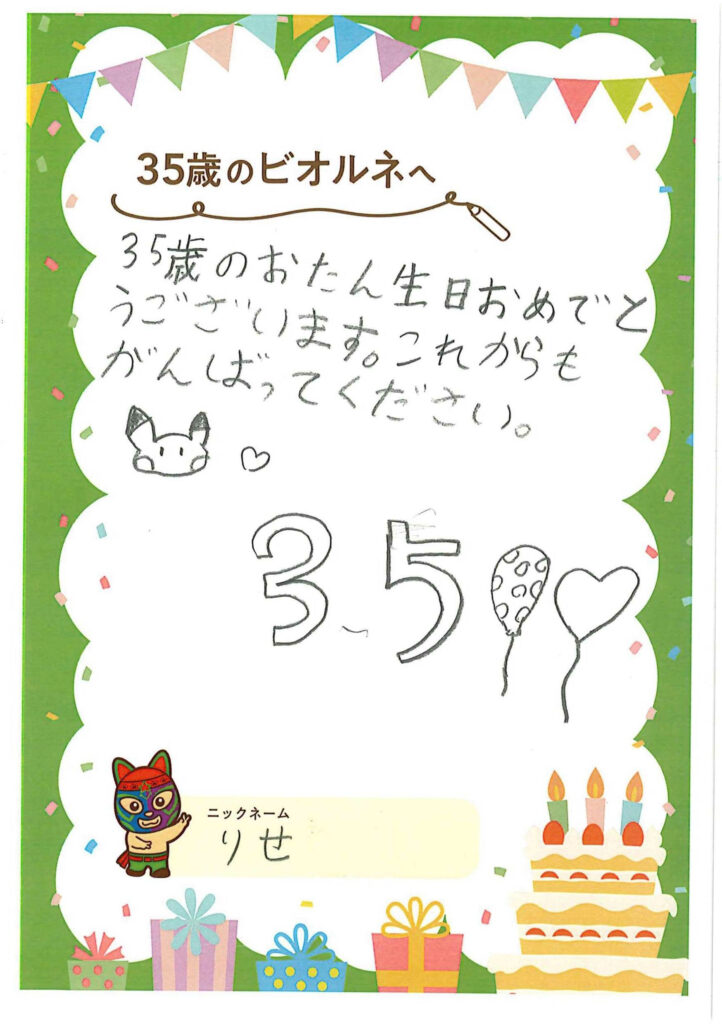 35歳のビオルネへ
35歳のおたん生日おめでと
うございます。これからも
がんばってください。
35
ニックネーム
りせ